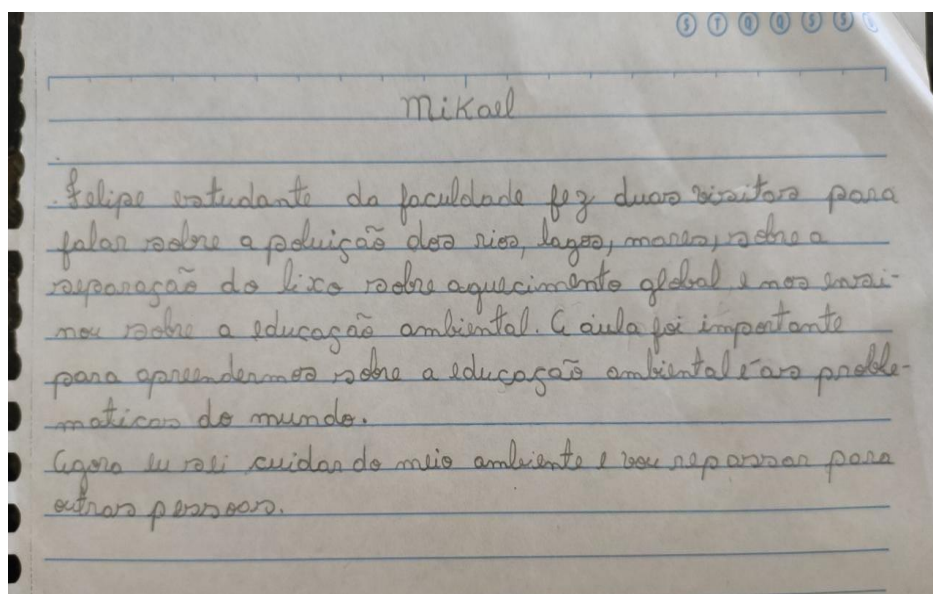 S T Q Q S S D
Mikael
.Felipe estudante da faculdade fez duas visitas para
falar sobre a poluição dos rios, lagos, mares, sobre a
separação do lixo sobre aquecimento global e nos ensi-
nou sobre a educação ambiental. A aula foi importante
para apreendermos sobre a educação ambiental e as proble-
maticas do mundo.
Agora eu sei cuidar do meio ambiente e vou repassar para
outras pessoas.